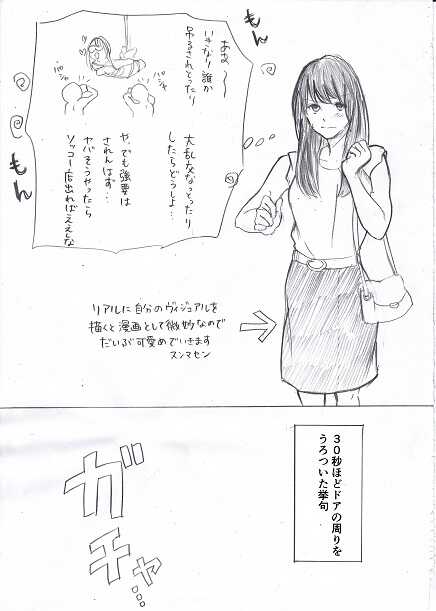 もん
ああ〜〜
いきなり誰か
吊るされとったり
パシャ
パシャ
大乱交なっとったり
したらどうしよ…
や、でも強要は
されんはず…
ヤバそうやったら
ソッコー店出ればええしな
もん
リアルに自分のヴィジュアルを
描くと漫画として微妙なので
だいぶ可愛めでいきます
スンマセン
30秒ほどドアの周りを
うろついた挙句
ガチャ…